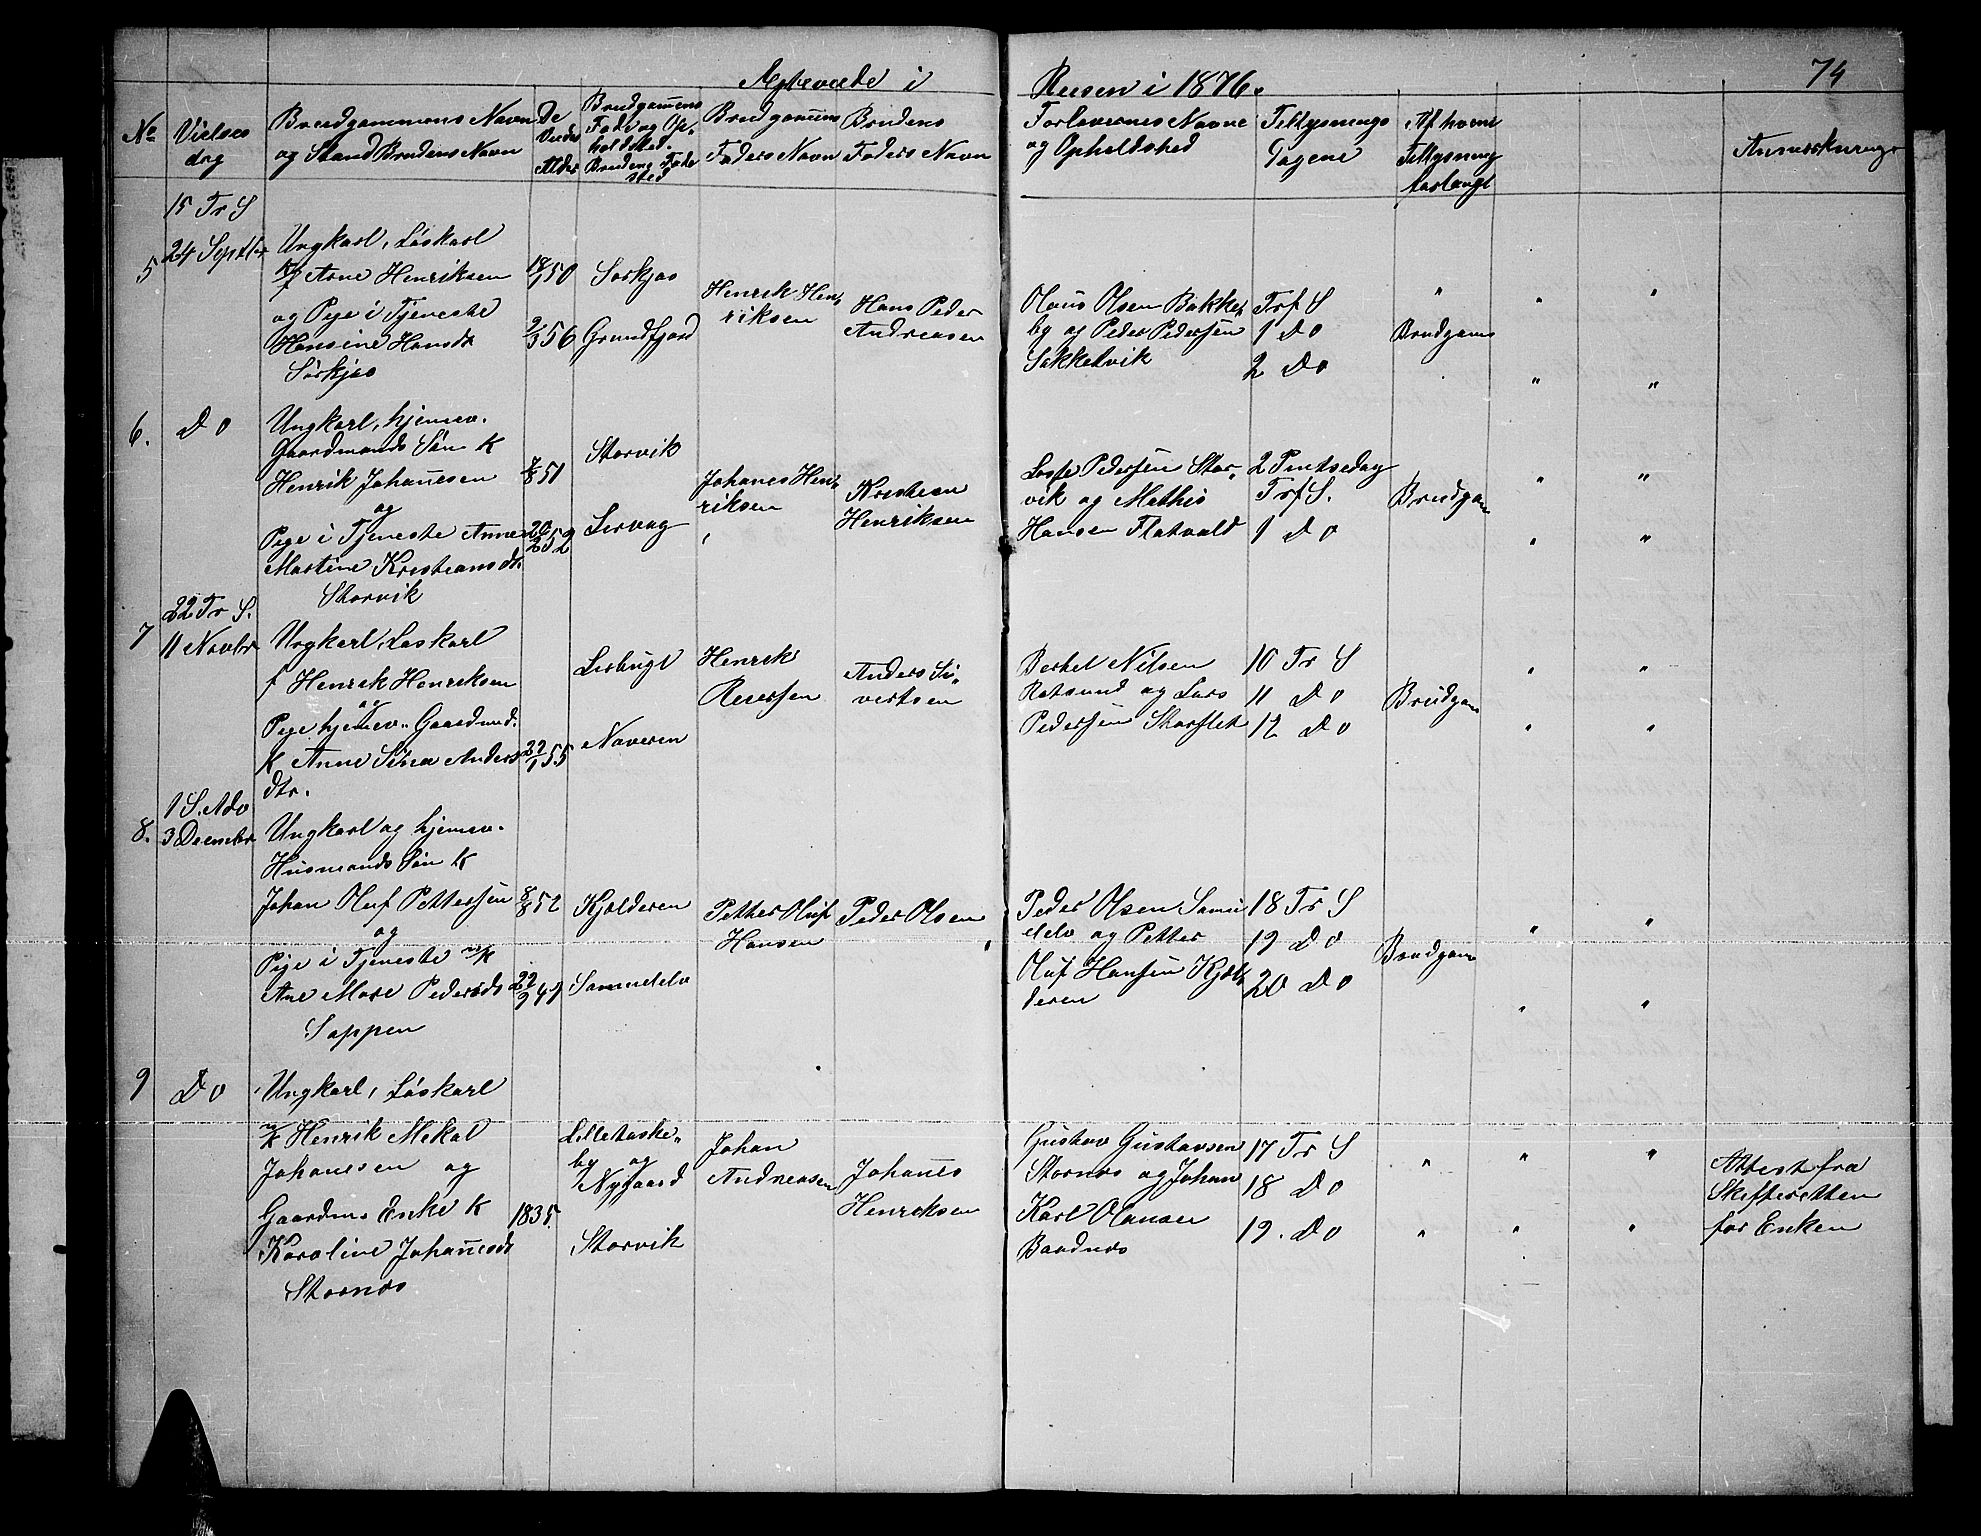 Ægteviede i
Reisen i 1876.
74
No
Vielses
dag
Brudgommens Navn
og Stand Brudens Navn
De
Viedes
Alder
Brudgommens
Føde og Op-
holdsted.
Brudens Føde
sted
Brudgommens
Faders Navn
Brudens
Faders Navn
Forlovernes Navne
og Opholdsted
Tillysnings
Dagene
Af hvem
Tillysning
forlangt
Anmerkninger
15 Tr S
5
24 Septbr
Ungkarl, Løskarl
Arne Henriksen
og Pige i Tjeneste
Hansine Hansdt
Sørkjos
18/1 50
2/3 56
Sørkjos
Grundfjord
Henrik Hen-
riksen
Hans Peder
Andreasen
Olaus Olsen Bakke-
by og Peder Pedersen
Sokkelvik
Trf S
1 Do
2 Do
"
Brudgom
" "
" "
6.
Do
Ungkarl, hjemev.
Gaardmands Søn K
Henrik Johannesen
og
Pige i Tjeneste Anne
Martine Kristiansdt.
Storvik
51
20/2 52
Storvik
Lervag
Johanes Hen-
riksen
Kristian
Henriksen
Pedersen Stor-
vik og Mathis
Hansen Flatvold
2 Pintsedag
Trf S.
1 Do
Brudgom
" "
" "
22 Tr S.
7
11 Novbr
Ungkarl, Løskarl
f Henrik Henriksen
og
Pige hjemev. Gaardmd.
K Anne Sina Anders
dtr.
22/1 55
Lerbugt
Naveren
Henrik
Reiersen
Anders Si-
vertsen
Berthel Nilsen
Rotsund og Lars
Pedersen Storslet
10 Tr S
11 Do
12 Do
Brudgom
" "
" "
1 S. Adv
8.
3 December
Ungkarl og hjemev.
Husmands Søn K
Johan Oluf Pettersen
og
Pige i Tjeneste n/K
Ane Mare Pedersdt
Sappen
8/8 52
22/9 47
Kjelderen
Samuelelv
Petter Oluf
Hansen
Peder Olsen
Peder Olsen Samu
elelv og Petter
Oluf Hansen Kjel-
deren
18 Tr S
19 Do
20 Do
Brudgom
" "
" "
9
Do
Ungkarl, Løskarl
n/K Henrik Mikal
Johanesen og
Gaardm. Enke K
Karoline Johanesdt
Stornes
1835.
Lilletaske-
by og
Nygaard
Storvik
Johan
Andreasen
Johanes
Henriksen
Gustav Gustavsen
Stornes og Johan
Karl Olausen
Baadnes
17 Tr S
18 Do
19. Do
" " "
" " "
Attest fra
Skifteretten
for Enken